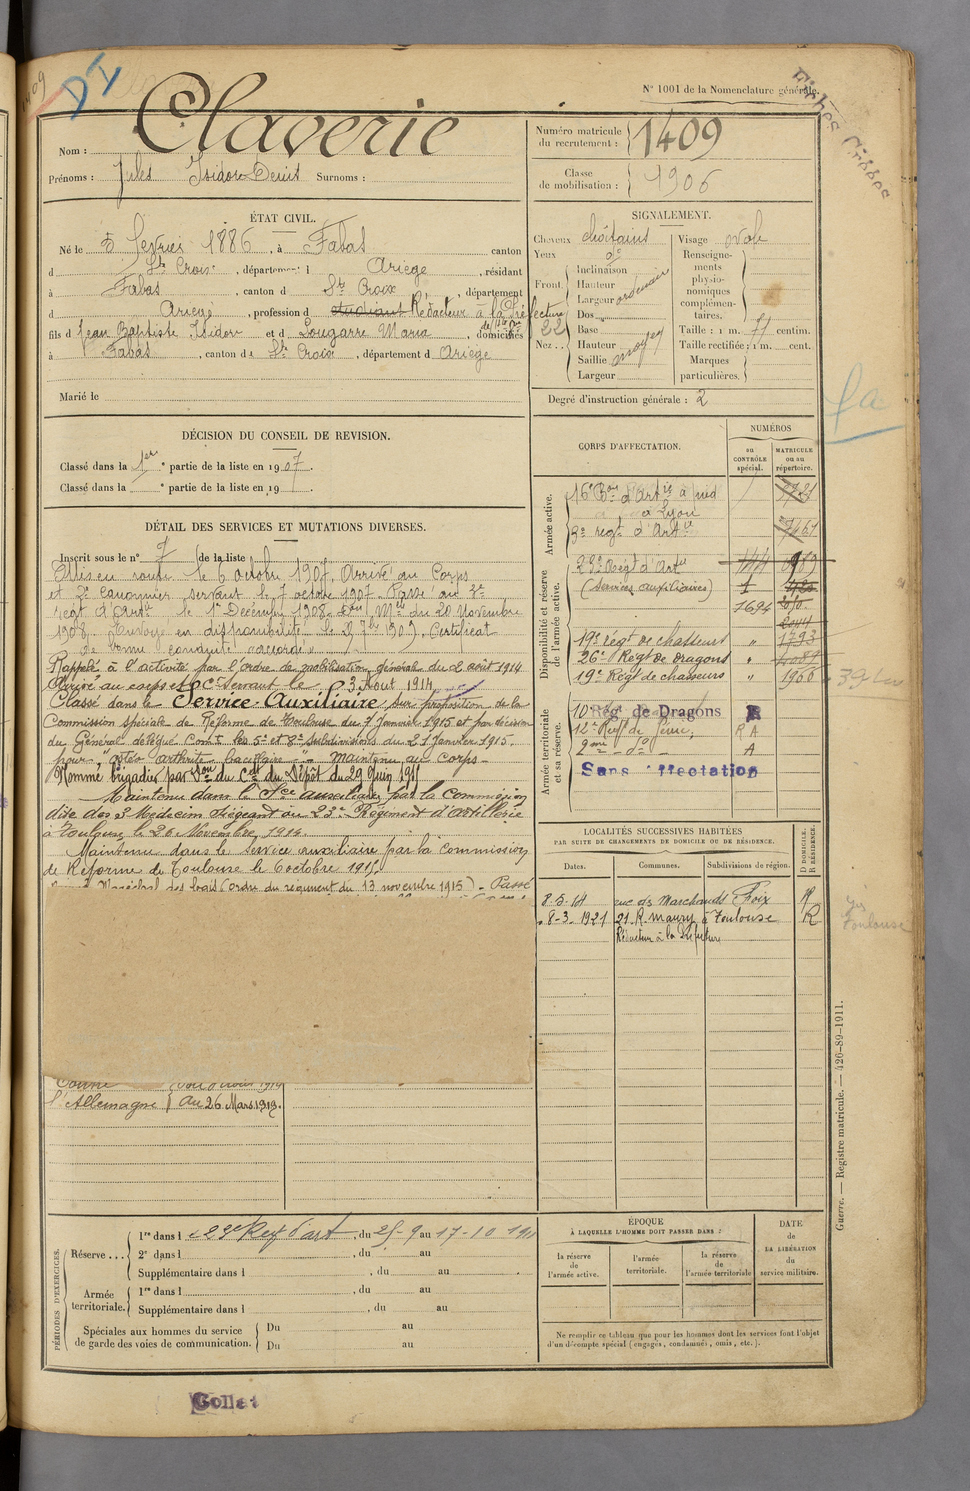 1409
DI
N° 1001 de la Nomenclature générale.
Fiches
Nom : Claverie
Prénoms : Jules Isidore Denis Surnoms :
Numéro matricule du recrutement : 1409
Classe de mobilisation : 1906
ÉTAT CIVIL.
Né le 5 février 1886, à Fabas canton
d Ste Croix, département d Ariège, résidant
à Fabas, canton d Ste Croix, département
d Ariège, profession d étudiant Rédacteur à la Préfecture
fils d Jean Baptiste Isidore et d Lougarre Maria, domiciliés
à Fabas, canton d Ste Croix, département d Ariège
Marié le
SIGNALEMENT.
Cheveux châtains Visage ovale
Yeux
Front. Inclinaison
Hauteur
Largeur ordinaire
Nez.. Dos
Base
Hauteur
Saillie moyen
Largeur
Renseignements physionomiques complémentaires.
Taille : 1 m. 71 centim.
Taille rectifiée : 1 m. cent.
Marques particulières.
Degré d'instruction générale : 2
DÉCISION DU CONSEIL DE REVISION.
Classé dans la 1er e partie de la liste en 1907.
Classé dans la e partie de la liste en 19
DÉTAIL DES SERVICES ET MUTATIONS DIVERSES.
Inscrit sous le n° 7 de la liste
Mis en route le 6 octobre 1907, Arrivé au Corps
et 2e canonnier servant le 7 octobre 1907. Passé au 3e
régt d'Artie le 1er Décembre 1908. Don Mlle du 20 Novembre
1908. Envoyé en disponibilité le 25 7bre 1909. Certificat
de bonne conduite "accordé".
Rappelé à l'activité par l'ordre de mobilisation générale du 2 août 1914
Arrivé au corps et 2e C. servant le 3 Août 1914.
Classé dans le Service Auxiliaire sur proposition de la
Commission spéciale de Réforme de Toulouse du 7 Janvier 1915 et par décision
du Général délégué Comt les 5e et 8e subdivisions du 21 Janvier 1915.
pour "ostéo arthrite bacillaire" - maintenu au corps -
Nommé brigadier par Don du Cdt du Dépôt du 29 Juin 1915
Maintenu dans le Sce auxiliaire par la Commission
dite des 3 Médecins siégeant au 23e Régiment d'artillerie
à Toulouse le 26 Novembre 1914.
Maintenu dans le service auxiliaire par la Commission
de Réforme de Toulouse le 6 octobre 1915.
Maréchal des logis (ordre du régiment du 13 novembre 1915) - Passé
l'Allemagne au 26 Mars 1919.
CORPS D'AFFECTATION.
NUMÉROS
au CONTRÔLE spécial.
MATRICULE ou au répertoire.
Armée active.
16e Bon d'Artie à pied
à Lyon
3e régt d'Artie
Disponibilité et réserve de l'armée active.
23e Régt d'Artie
(services auxiliaires) 1
1694
19e régt de chasseurs " 1793
26e Régt de Dragons "
19e Régt de chasseurs " 1966
Armée territoriale et sa réserve.
10e Rég. de Dragons R
12e Régt de Génie, R A
2me - do - A
Sans affectation
LOCALITÉS SUCCESSIVES HABITÉES
PAR SUITE DE CHANGEMENTS DE DOMICILE OU DE RÉSIDENCE.
Dates. Communes. Subdivisions de région. D DOMICILE. R RÉSIDENCE.
8-5-14 rue des Marchands Foix R
8-3-1921 21 R. Maury à Toulouse R
Rédacteur à la Préfecture
Toulouse
PÉRIODES D'EXERCICES.
Réserve... 1re dans l e 23e Regt d'art, du 25-9 au 17-10 1911
2e dans l , du au
Supplémentaire dans l , du au
Armée territoriale. 1re dans l , du au
Supplémentaire dans l , du au
Spéciales aux hommes du service de garde des voies de communication. Du au
Du au
ÉPOQUE
À LAQUELLE L'HOMME DOIT PASSER DANS :
la réserve de l'armée active.
l'armée territoriale.
la réserve de l'armée territoriale
DATE DE LA LIBÉRATION du service militaire.
Ne remplir ce tableau que pour les hommes dont les services font l'objet
d'un décompte spécial (engagés, condamnés, omis, etc.).
Guerre. — Registre matricule. — 426-89-1911.